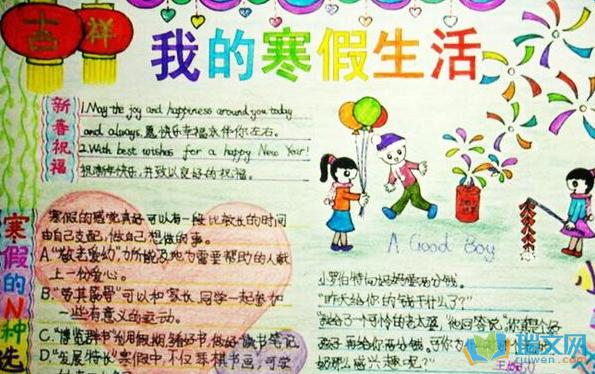 吉祥
我的寒假生活
新春祝福
1.May the joy and happiness around you today
and always.愿快乐幸福永伴你左右。
2.With best wishes for a happy New Year!
祝新年快乐,并致以良好的祝福。
寒假的N种选
寒假的感觉真好可以有一段比较长的时间
由自己支配,做自己想做的事。
A."敬老爱幼"力所能及地为需要帮助的人献
上一份爱心。
B."苦其筋骨"可以和家长、同学一起参加
一些有意义的运动。
C."博览群书"利用假期,多看好书,做好读书笔记
D."发展特长"寒假中,不仅琴棋书画,可学
A Good Boy
小罗伯特向妈妈要两分钱。
"昨天给你的钱干什么了?"
"我给了一个可怜的老太婆,"他回答说,"你真是个好
孩子,再给你两分钱。可你为什么
奶那么感兴趣呢?"
瑞文网